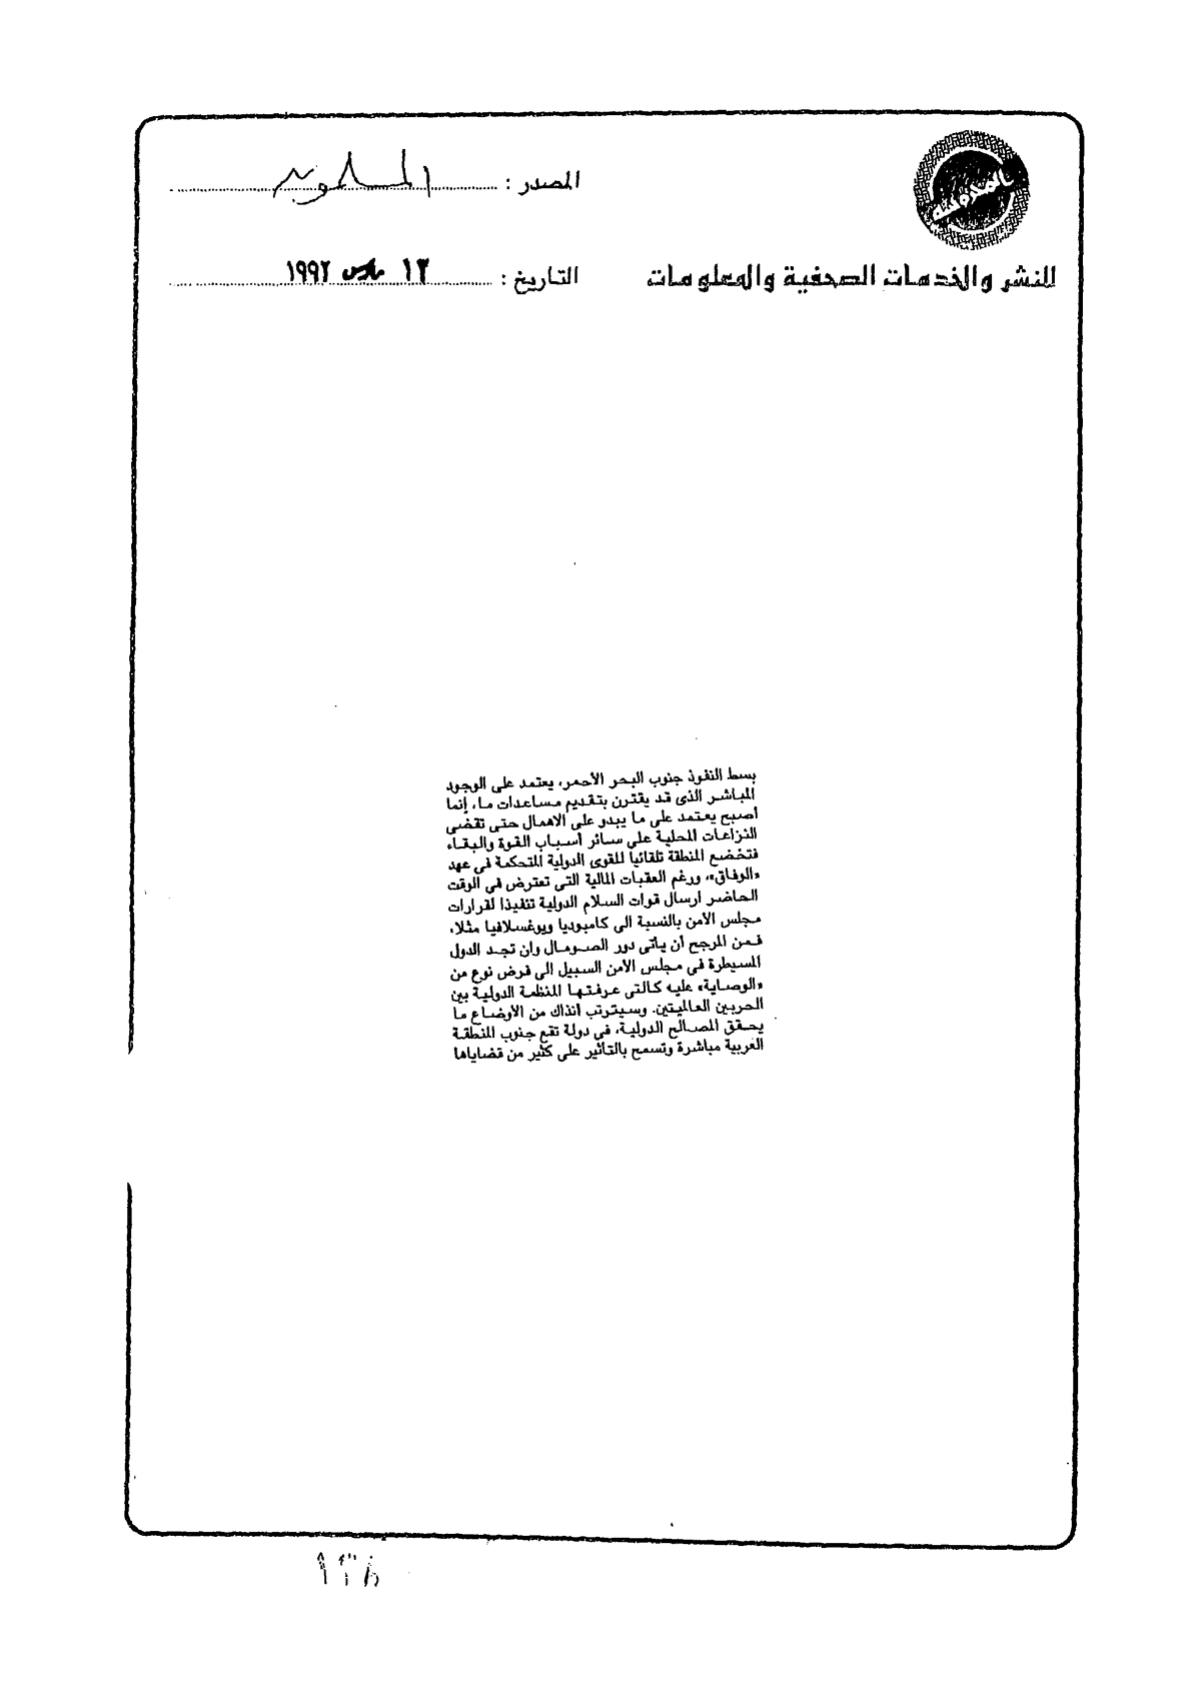 المصدر : المسلمون
للنشر والخدمات الصحفية والمعلومات
التاريخ : ١٣ مارس ١٩٩٢
بسط النفوذ جنوب البحر الأحمر، يعتمد على الوجود
المباشر الذى قد يقترن بتقديم مساعدات ما، إنما
أصبح يعتمد على ما يبدو على الاهمال حتى تقضى
النزاعات المحلية على سائر أسباب القوة والبقاء
فتخضع المنطقة تلقائياً للقوى الدولية المتحكمة فى عهد
«الوفاق»، ورغم العقبات المالية التى تعترض فى الوقت
الحاضر ارسال قوات السلام الدولية تنفيذا لقرارات
مجلس الأمن بالنسبة الى كامبوديا ويوغسلافيا مثلا،
فمن المرجح أن يأتى دور الصومال وان تجد الدول
المسيطرة فى مجلس الأمن السبيل الى فرض نوع من
«الوصاية» عليه كالتى عرفتها المنظمة الدولية بين
الحربين العالميتين. وسيترتب آنذاك من الأوضاع ما
يحقق المصالح الدولية، فى دولة تقع جنوب المنطقة
العربية مباشرة وتسمح بالتأثير على كثير من قضاياها